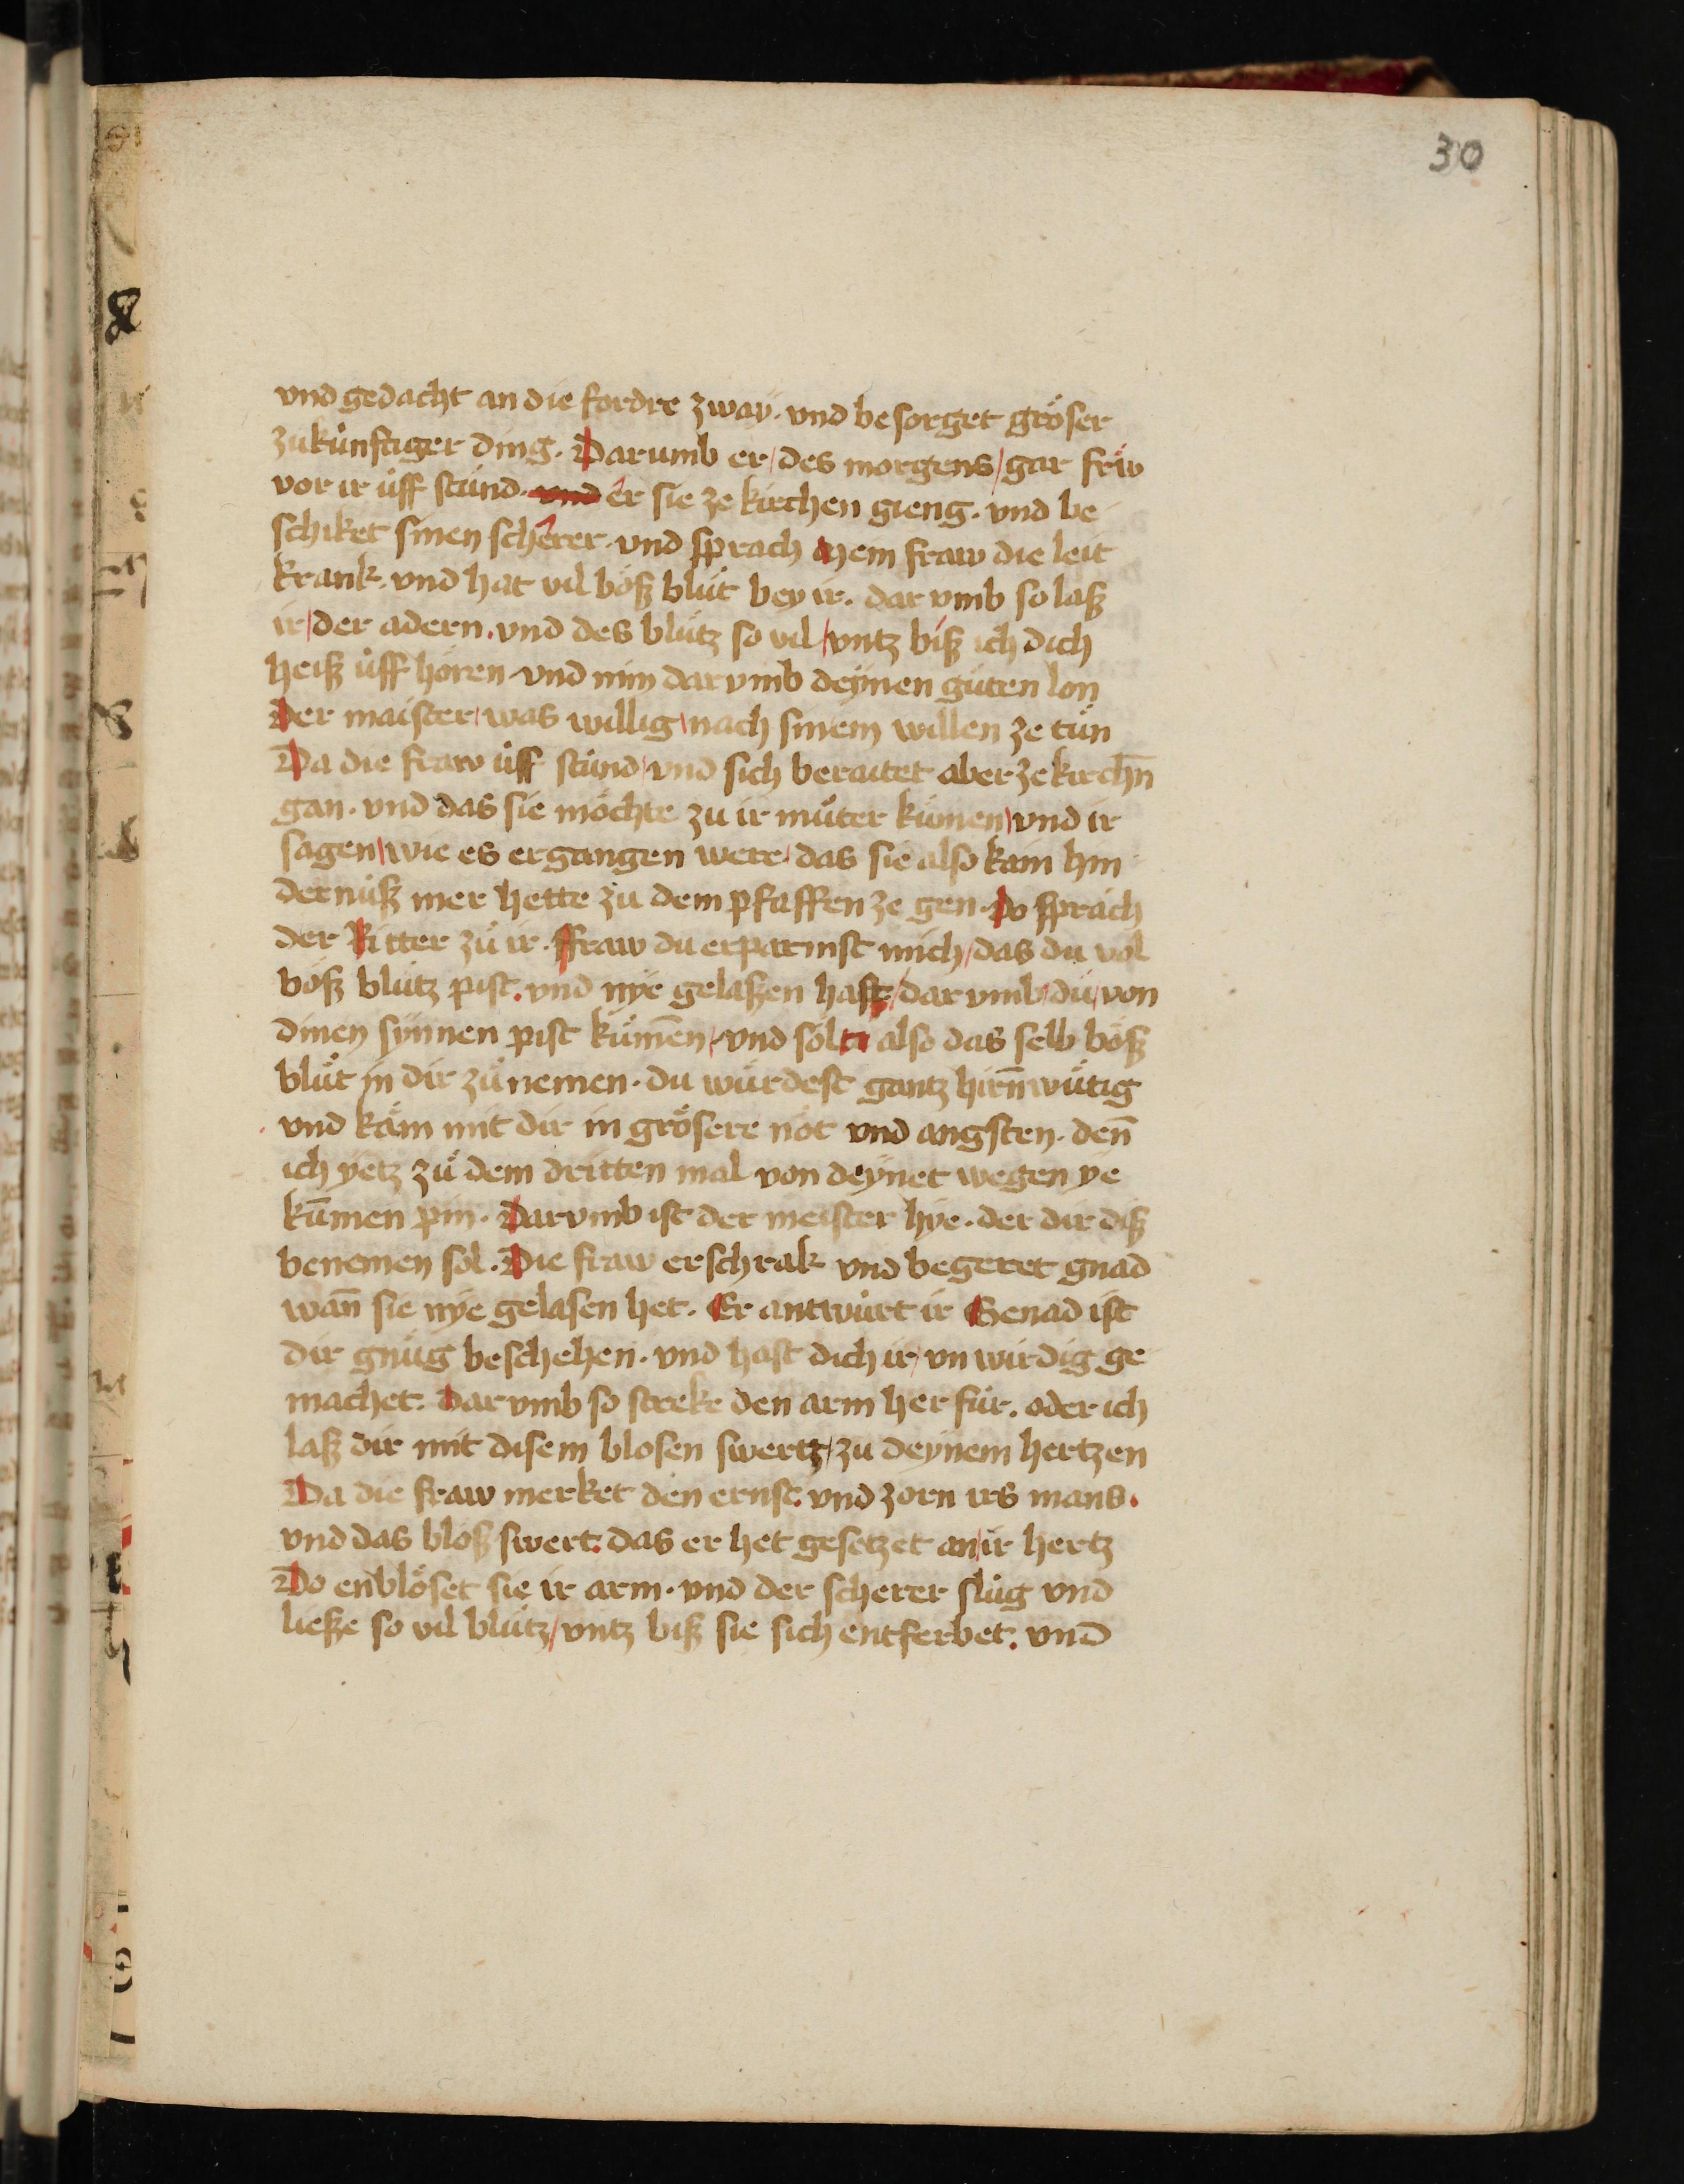 30
vnd gedacht an die fordre zway· vnd besorget gröser
zukünftiger ding· Darumb er / des morgens / gar frw̍
vor ir u̍ff stu̍nd· vnd er sie ze kirchen gieng· vnd be
schiket sinen scherer· vnd sprach Mein fraw die leit
krank· vnd hat vil böß blu̍t bey ir· dar vmb so laß
ir / der adern· vnd des blu̍tz so vil / vntz biß ich dich
heiß u̍ff hören vnd nim dar vmb deynen gu̍ten lon
Der maister / was willig / nach sinem willen ze tu̍n
Da die fraw u̍ff stu̍nd / vnd sich beraitet aber ze kirchn̄
gan· vnd das sie möchte zu ir mu̍ter ku̍men / vnd ir
sagen / wie es ergangen were / das sie also kain hin
dernu̍ß mer hette zu̍ dem pfaffen ze gen· Do sprach
der Ritter zu̍ ir· ffraw du erparmst mich / das du vol
böß blu̍tz pist· vnd nye gelaßen hast / dar vmb / du / von
dinen synnen pist kum̄en / vnd sölt also das selb böß
blu̍t in dir zu̍ nemen· du wu̍rdest gantz hirn̄wu̍tig
vnd käm mit dir in grösere not vnd angsten· den̄
ich yetz zu̍ dem dritten mal von deynet wegen ye
kum̄en pin· Darvmb ist der meister hye· der dir diß
benemen sol· Die fraw erschrak vnd begeret gnad
wan̄ sie nye gelasen het· Er antwu̍rt ir Genad ist
dir gnu̍g beschehen· vnd hast dich ir / vn wirdig ge
machet· Dar vmb so streke den arm her fu̍r· oder ich
laß dir mit disem blosen swertz / zu deynem hertzen
Da die fraw merket den ernst· vnd zorn irs mans·
vnd das bloß swert· das er het gesetzet an / ir hertz
Do enblöset sie ir arm· vnd der scherer slu̍g vnd
ließe so vil blu̍tz / vntz biß sie sich entferbet· vnd